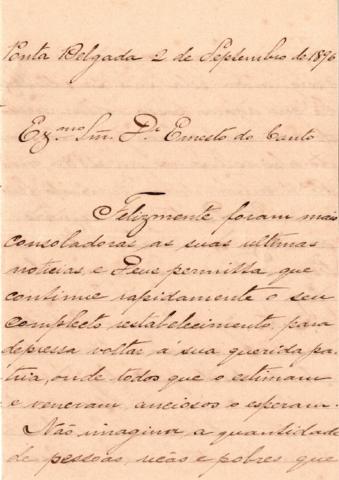 Ponta Delgada 2 de Septembro de 1896
Exmo Snr. Dr Ernesto do Canto
Felizmente foram mais
consoladoras as suas ultimas
noticias, e Deus permitta que
continue rapidamente o seu
completo restabelecimento, para
depressa voltar á sua querida pa-
tria, onde todos que o estimam
e veneram, anciosos o esperam.
Não imagina a quantidade
de pessoas, ricas e pobres que